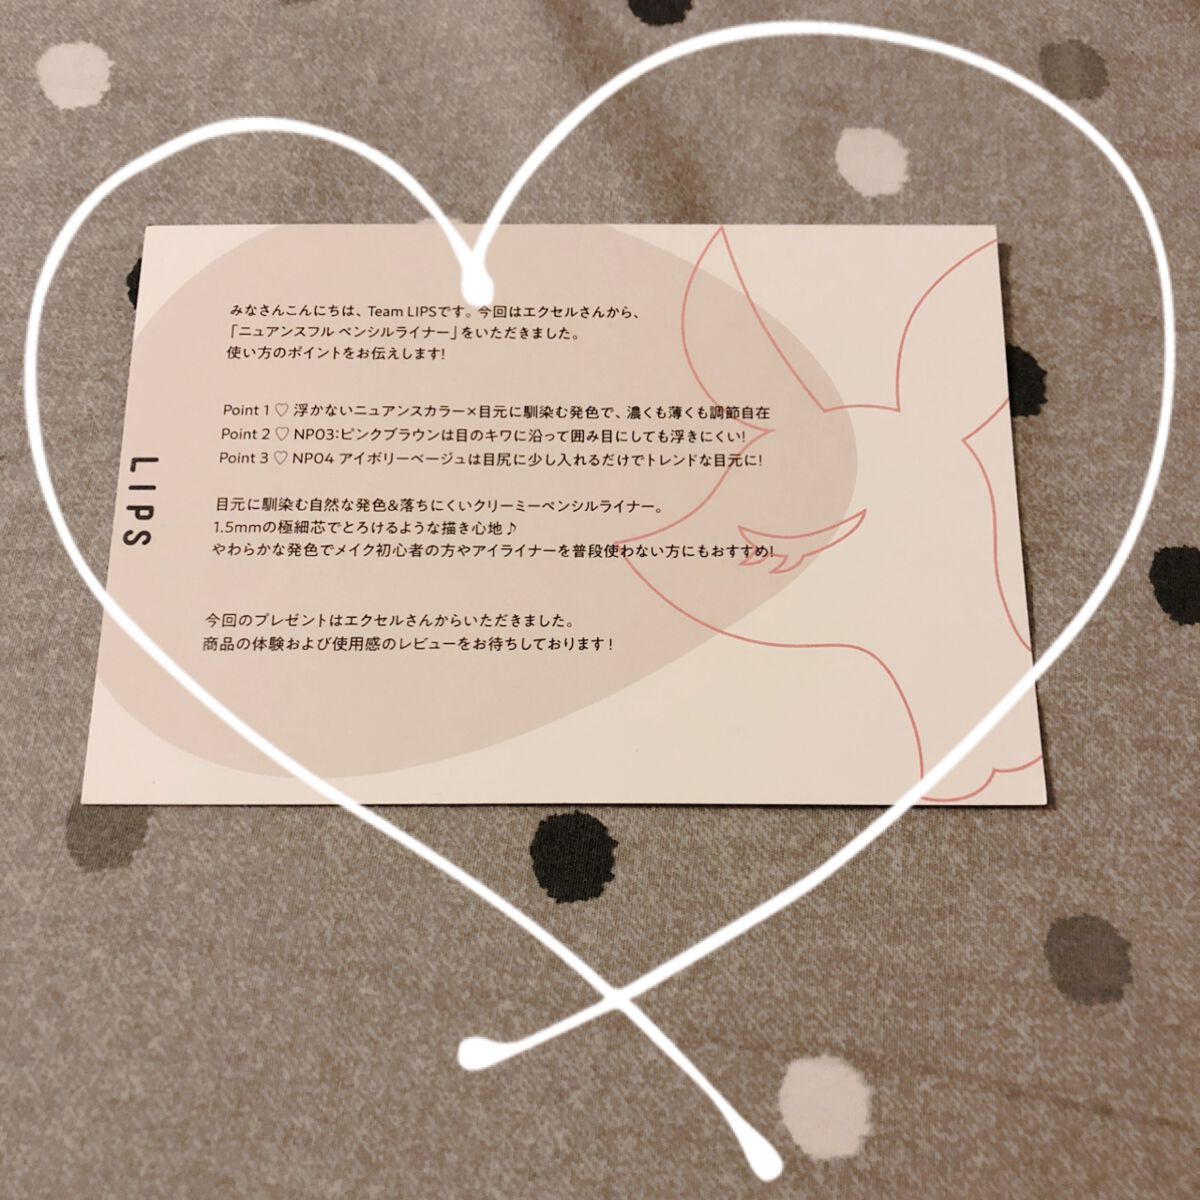 みなさんこんにちは、Team LIPSです。今回はエクセルさんから、
「ニュアンスフル ペンシルライナー」をいただきました。
使い方のポイントをお伝えします!
Point 1 ♡ 浮かないニュアンスカラー×目元に馴染む発色で、濃くも薄くも調節自在
Point 2 ♡ NP03:ピンクブラウンは目のキワに沿って囲み目にしても浮きにくい!
Point 3 ♡ NP04 アイボリーベージュは目尻に少し入れるだけでトレンドな目元に!
目元に馴染む自然な発色&落ちにくいクリーミーペンシルライナー。
1.5mmの極細芯でとろけるような描き心地♪
やわらかな発色でメイク初心者の方やアイライナーを普段使わない方にもおすすめ!
今回のプレゼントはエクセルさんからいただきました。
商品の体験および使用感のレビューをお待ちしております!
LIPS